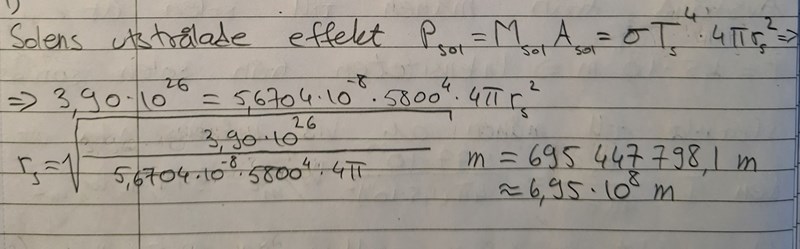 1)
Solens utstrålade effekt P_sol = M_sol A_sol = σT_s⁴ · 4πr_s² ⇒
⇒ 3,90·10²⁶ = 5,6704·10⁻⁸·5800⁴·4π r_s²
r_s = √(3,90·10²⁶ / 5,6704·10⁻⁸·5800⁴·4π) m = 695 447 798,1 m
≈ 6,95·10⁸ m